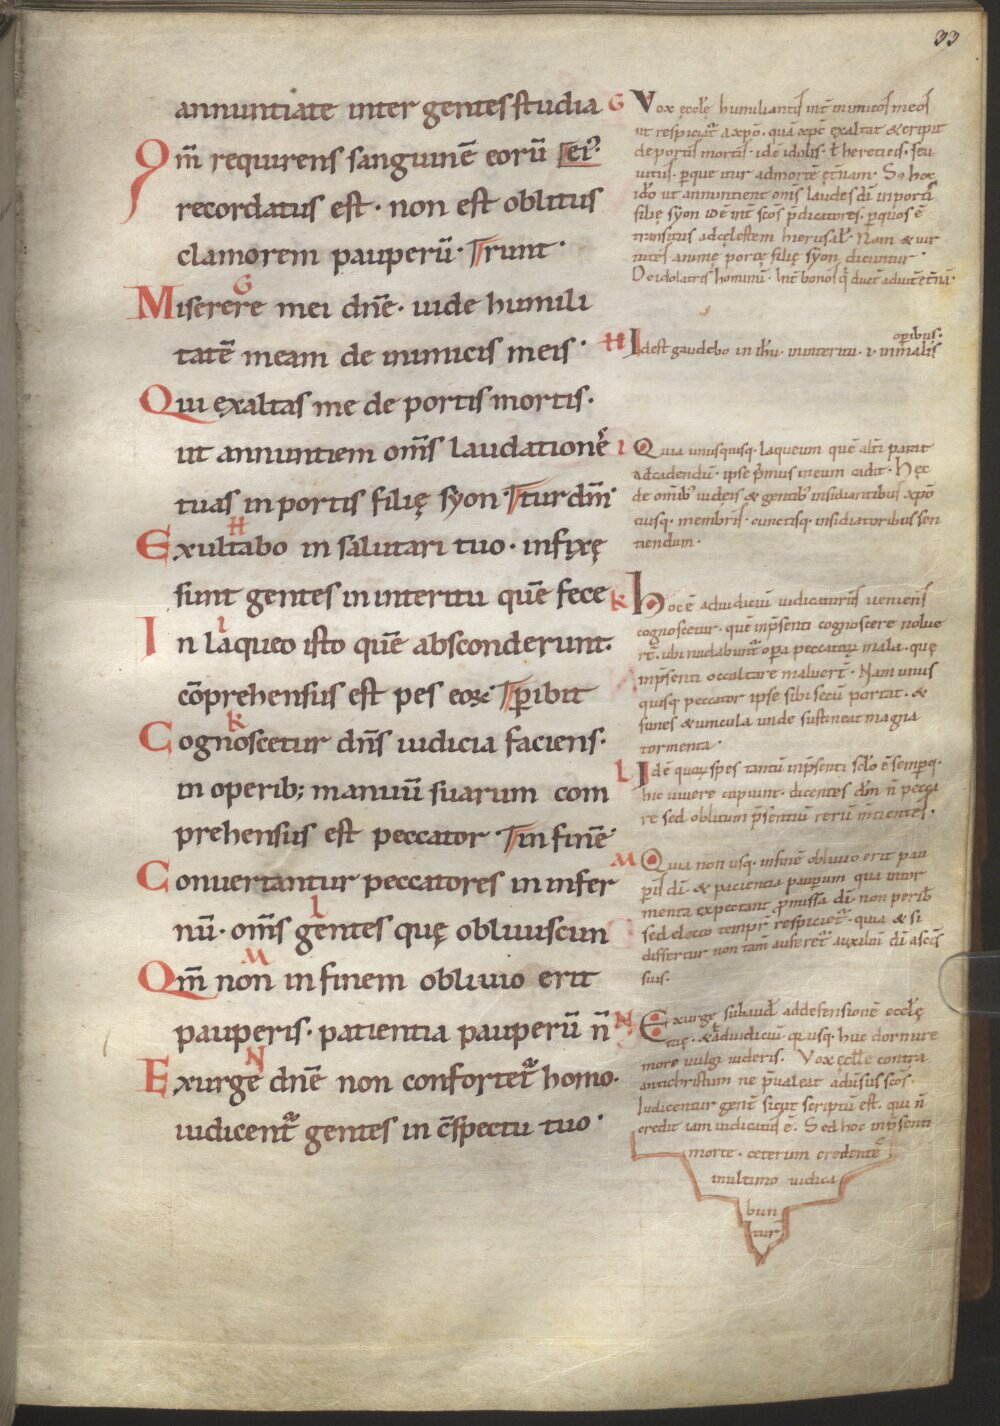 33
annuntiate inter gentes studia
Qm̄ requirens sanguinē eorū ei᷒.
recordatus est · non est oblitus
clamorem pauperū · Trunt ·
G
Miserere mei dn̄e · uide humili
tatē meam de inimicis meis ·
Qui exaltas me de portis mortis ·
ut annuntiem om̄s laudationē
tuas in portis filię syon Ttur dm̄
H
Exultabo in salutari tuo · infixę
sunt gentes in interitu quē fece
I
In laqueo isto quē absconderunt.
cōprehensus est pes eoꝝ Tꝑibit
K
Cognoscetur dn̄s iudicia faciens ·
in operib; manuū suarum com
prehensus est peccator · Tin finē
Conuertantur peccatores in infer
L
nū · om̄s gentes quę obliuiscun
M
Qm̄ non in finem obliuio erit
pauperis · patientia pauperū n̄
N
Exurge dn̄e non confortet᷑ homo ·
iudicent᷑ gentes in c̄spectu tuo ·
G Vox ęccłę humiliantis int̄ inimicos meos
ut respiciat᷑ a xp̄o · quā xp̄c exaltat & eripit
de portis mortis · id ē idolis · ł hereticis · seu
uitiis · ꝑque itur ad mortē ęt̄nam · Sꝫ hoc
idō ut annuntient om̄s laudes dī in porti
filię syon id ē int̄ scōs p̄dicatores · ꝑquos ē
transitus ad cęlestem hierusał · Nam & uir
tutes animę portę filię syon dicuntur ·
De idolatris hominū · Int̄ bonos q̄ duct̄ ad uitā ęt̄nā ·
operibus ·
H Id est gaudebo in ihū · in interitu · i · in malis
I Quia unusquisq · laqueum quē alt̄i parat
ad cadendū · ipse p̄mus in eum cadit · Hęc
de om̄ib; iudeis & gentib; insidiantibus xp̄o
eiusq · membris · cunctisq · insidiatoribus sen
tiendum ·
K Hoc ē ad iudiciū iudicaturus ueniens
cognoscetur · quē in p̄senti cognoscere nolue
rt̄ · ubi nudabunt᷑ opa peccatorꝝ mala · quę
in p̄senti occultare maluert̄ · Nam unus
quisq peccator ipse sibi secū portat · &
funes & uincula unde sustineat magna
tormenta ·
L Id ē quoꝝ spes tantū in p̄senti scło ē semp̄q ·
hic uiuere cupiunt · dicentes dm̄ n̄ pecca
re sed oblitum p̄sentiū rerū
M Quia non usq · in finē obliuio erit pau
ꝑis dī · & pacientia pauꝑum qua
menta expectant ꝓmissa dī · non peribit
sed electo tempr̄ respiciet᷑ · quia & si
differtur non tam̄ auferet᷑ auxiliū dī a scīs
suis ·
N Exurgę subaud ad defensionē eccłę
tuę · & ad iudiciū qui usq · huc dormire
more uulgi uideris · Vox ęccłę contra
antichristum ne p̄ualeat aduersus scōs ·
Iudicentur gent̄ sicut scriptū est · qui n̄
credit iam iudicatus ē · Sed hoc in p̄senti
morte · ceterum credentes
in ultimo iudica
bun
tur